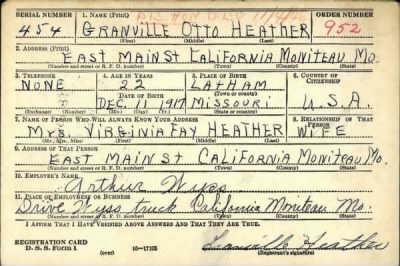 SERIAL NUMBER 1. NAME (Print) ORDER NUMBER
454 GRANVILLE OTTO HEATHER 952
(First) (Middle) (Last)
2. ADDRESS (Print)
EAST MAIN ST CALIFORNIA MONITEAU MO.
(Number and street or R. F. D. number) (Town) (County) (State)
3. TELEPHONE 4. AGE IN YEARS 5. PLACE OF BIRTH 6. COUNTRY OF CITIZENSHIP
NONE 22 LATHAM
DATE OF BIRTH (Town or county)
DEC. 11 1917 MISSOURI U.S.A.
(Exchange) (Number) (Mo.) (Day) (Yr.) (State or country)
7. NAME OF PERSON WHO WILL ALWAYS KNOW YOUR ADDRESS 8. RELATIONSHIP OF THAT PERSON
MRS. VIRGINIA FAY HEATHER WIFE
(Mr., Mrs., Miss) (First) (Middle) (Last)
9. ADDRESS OF THAT PERSON
EAST MAIN ST CALIFORNIA MONITEAU MO.
(Number and street or R. F. D. number) (Town) (County) (State)
10. EMPLOYER'S NAME
Arthur Wyss
11. PLACE OF EMPLOYMENT OR BUSINESS
Drive Wyss truck California Moniteau Mo.
(Number and street or R. F. D. number) (Town) (County) (State)
I AFFIRM THAT I HAVE VERIFIED ABOVE ANSWERS AND THAT THEY ARE TRUE.
REGISTRATION CARD
D. S. S. Form 1 (over) 16-17105 Granville Heather
(Registrant's signature)